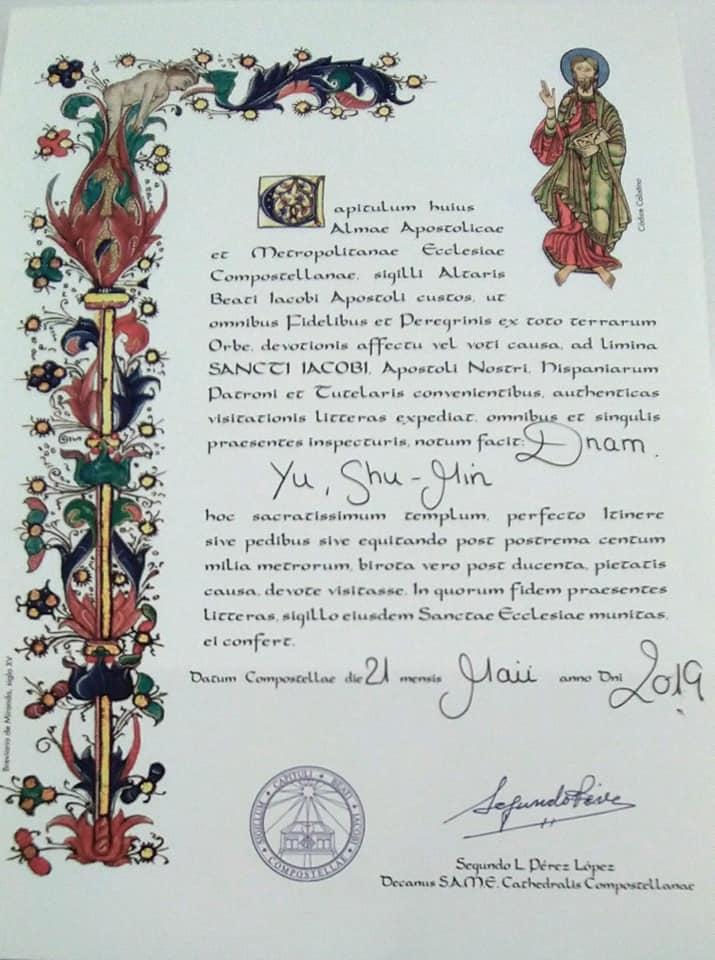 Capitulum huius
Almae Apostolicae
et Metropolitanae Ecclesiae
Compostellanae, sigilli Altaris
Beati Iacobi Apostoli custos, ut
omnibus Fidelibus et Peregrinis ex toto terrarum
Orbe, devotionis affectu vel voti causa, ad limina
SANCTI IACOBI, Apostoli Nostri, Hispaniarum
Patroni et Tutelaris convenientibus, authenticas
visitationis litteras expediat, omnibus et singulis
praesentes inspecturis, notum facit: Dnam.
Yu, Shu-Min
hoc sacratissimum templum, perfecto Itinere
sive pedibus sive equitando post postrema centum
milia metrorum, birota vero post ducenta, pietatis
causa, devote visitasse. In quorum fidem praesentes
litteras, sigillo eiusdem Sanctae Ecclesiae munitas,
ei confert.
Datum Compostellae die 21 mensis Maii anno Dni 2019
Códice Calixtino
Breviario de Miranda, siglo XV
SIGILLUM CAPITULI BEATI IACOBI
COMPOSTELLAE
Segundo L. Pérez López
Decanus S.A.M.E. Cathedralis Compostellanae